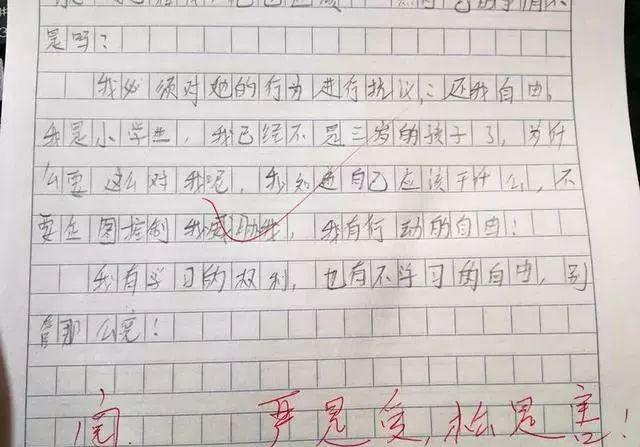 是吗？
我必须对她的行为进行抗议，还我自由。
我是小学生，我已经不是三岁的孩子了，为什
么要这么对我呢，我知道自己应该干什么，不
要企图控制我威胁我，我有行动的自由！
我有学习的权利，也有不学习的自由，别
管那么宽！
严是爱，松是害！